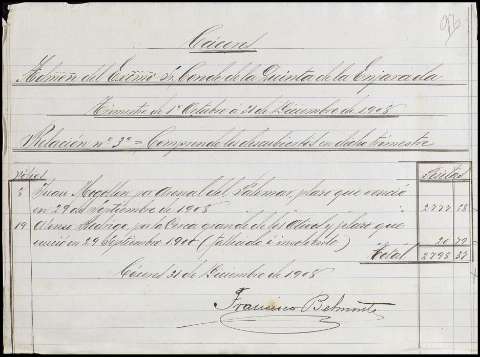 Cáceres
Admón del Excmo Sr. Conde de la Quinta de la Enjarada
Trimestre de 1º Octubre a 31 de Diciembre de 1908
Relación nº 3º = Comprende los descubiertos en dicho trimestre
Pesetas
5 Juan por del Palomar, plazo que venció 2777 58
en 29 de Septiembre de 1908
19 por la Cerca grande de los y plazo que
venció en 29 Septiembre 1908 (fallecido e insolvente) 20 79
Total 2798 37
Cáceres 31 de Diciembre de 1908
Francisco Belmonte